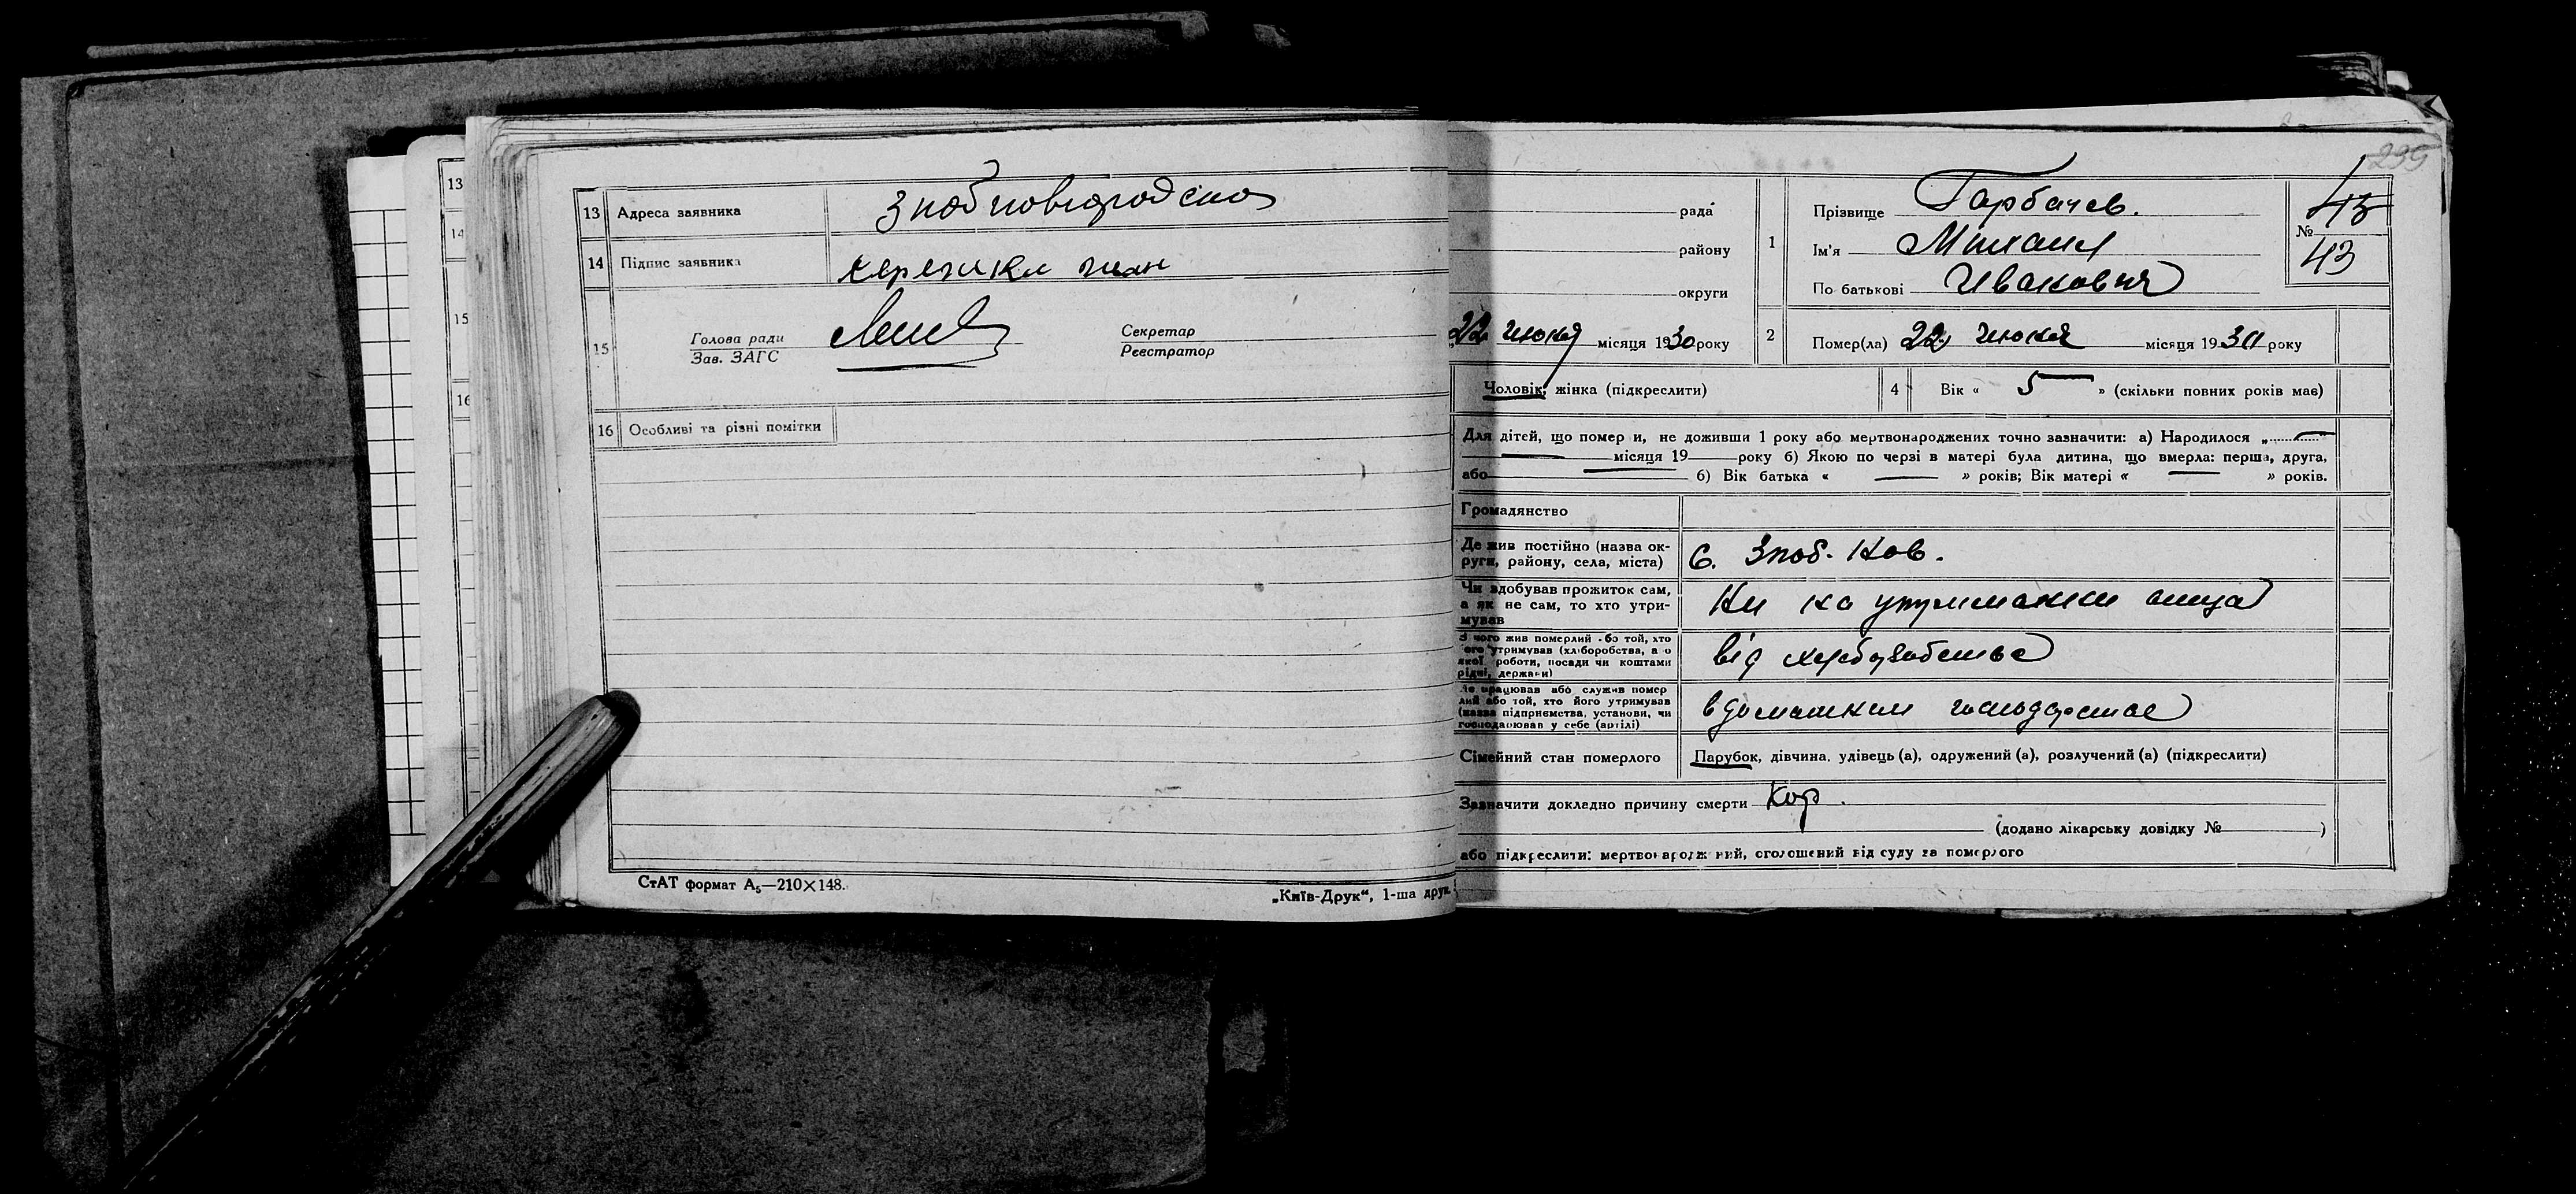 13
14
15
16
13 Адреса заявника Знобновгородско
14 Підпис заявника
15 Голова ради
Зав. ЗАГС
Секретар
Реєстратор
16 Особливі та різні помітки
СтАТ формат А5—210×148.
„Київ-Друк“, 1-ша друк.
295
рада
району
округи
1 Прізвище Гарбачев.
Ім'я Михаил
По батькові Ивакович
№ 43
43
22 июня місяця 1930 року
2 Помер(ла) 22 июня місяця 1930 року
Чоловік, жінка (підкреслити)
4 Вік « 5 » (скільки повних років має)
Для дітей, що померли, не доживши 1 року або мертвонароджених точно зазначити: а) Народилося „
місяця 19 року б) Якою по черзі в матері була дитина, що вмерла: перша, друга,
або б) Вік батька « » років; Вік матері « » років.
Громадянство
Де жив постійно (назва ок-
руги, району, села, міста) С. Зноб. Нов.
Чи здобував прожиток сам,
а як не сам, то хто утри-
мував Ни на утримании отца
З чого жив померлий або той, хто
його утримував (хліборобства, а о
якої роботи, посади чи коштами
рідні, держави) від
Де працював або служив помер
лий або той, хто його утримував
(назва підприємства, установи, чи
господарював у себе (артілі) в домашним господарстве
Сімейний стан померлого Парубок, дівчина, удівець (а), одружений (а), розлучений (а) (підкреслити)
Зазначити докладно причину смерти Кор.
(додано лікарську довідку № )
або підкреслити: мертвонароджений, оголошений від суду за померлого